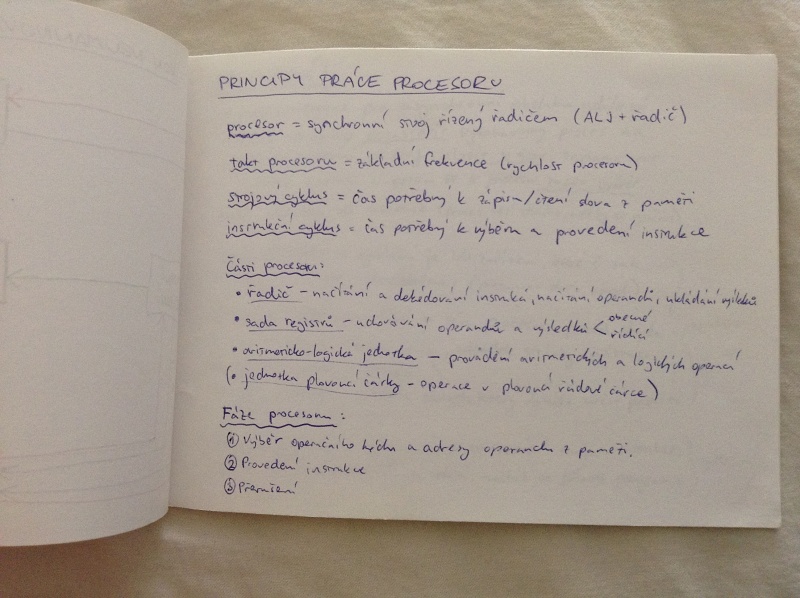 PRINCIPY PRÁCE PROCESORU
procesor = synchronní stroj řízený řadičem (ALJ + řadič)
takt procesoru = základní frekvence (rychlost procesoru)
strojový cyklus = čas potřebný k zápisu/čtení slova z paměti
instrukční cyklus = čas potřebný k výběru a provedení instrukce
Části procesoru:
• řadič - načítání a dekódování instrukcí, načítání operandů, ukládání výsledků
• sada registrů - uchovávání operandů a výsledků < obecné
řídící
• aritmeticko-logická jednotka - provádění aritmetických a logických operací
(• jednotka plovoucí čárky - operace v plovoucí řádové čárce)
Fáze procesoru:
① Výběr operačního kódu a adresy operandu z paměti.
② Provedení instrukce
③ Přerušení